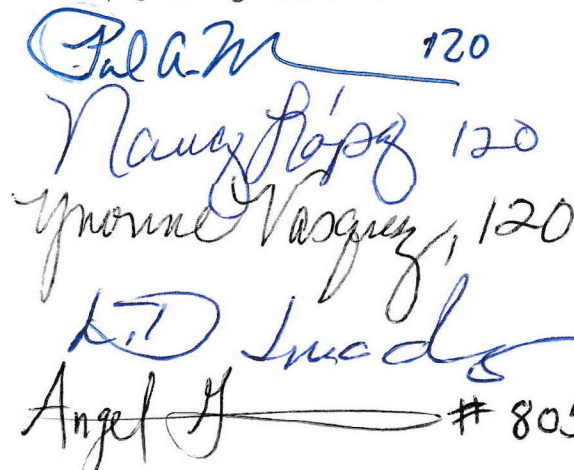 Paul A. M 120
Nancy López 120
Yvonne Vasquez, 120
L.D
Angel G # 805